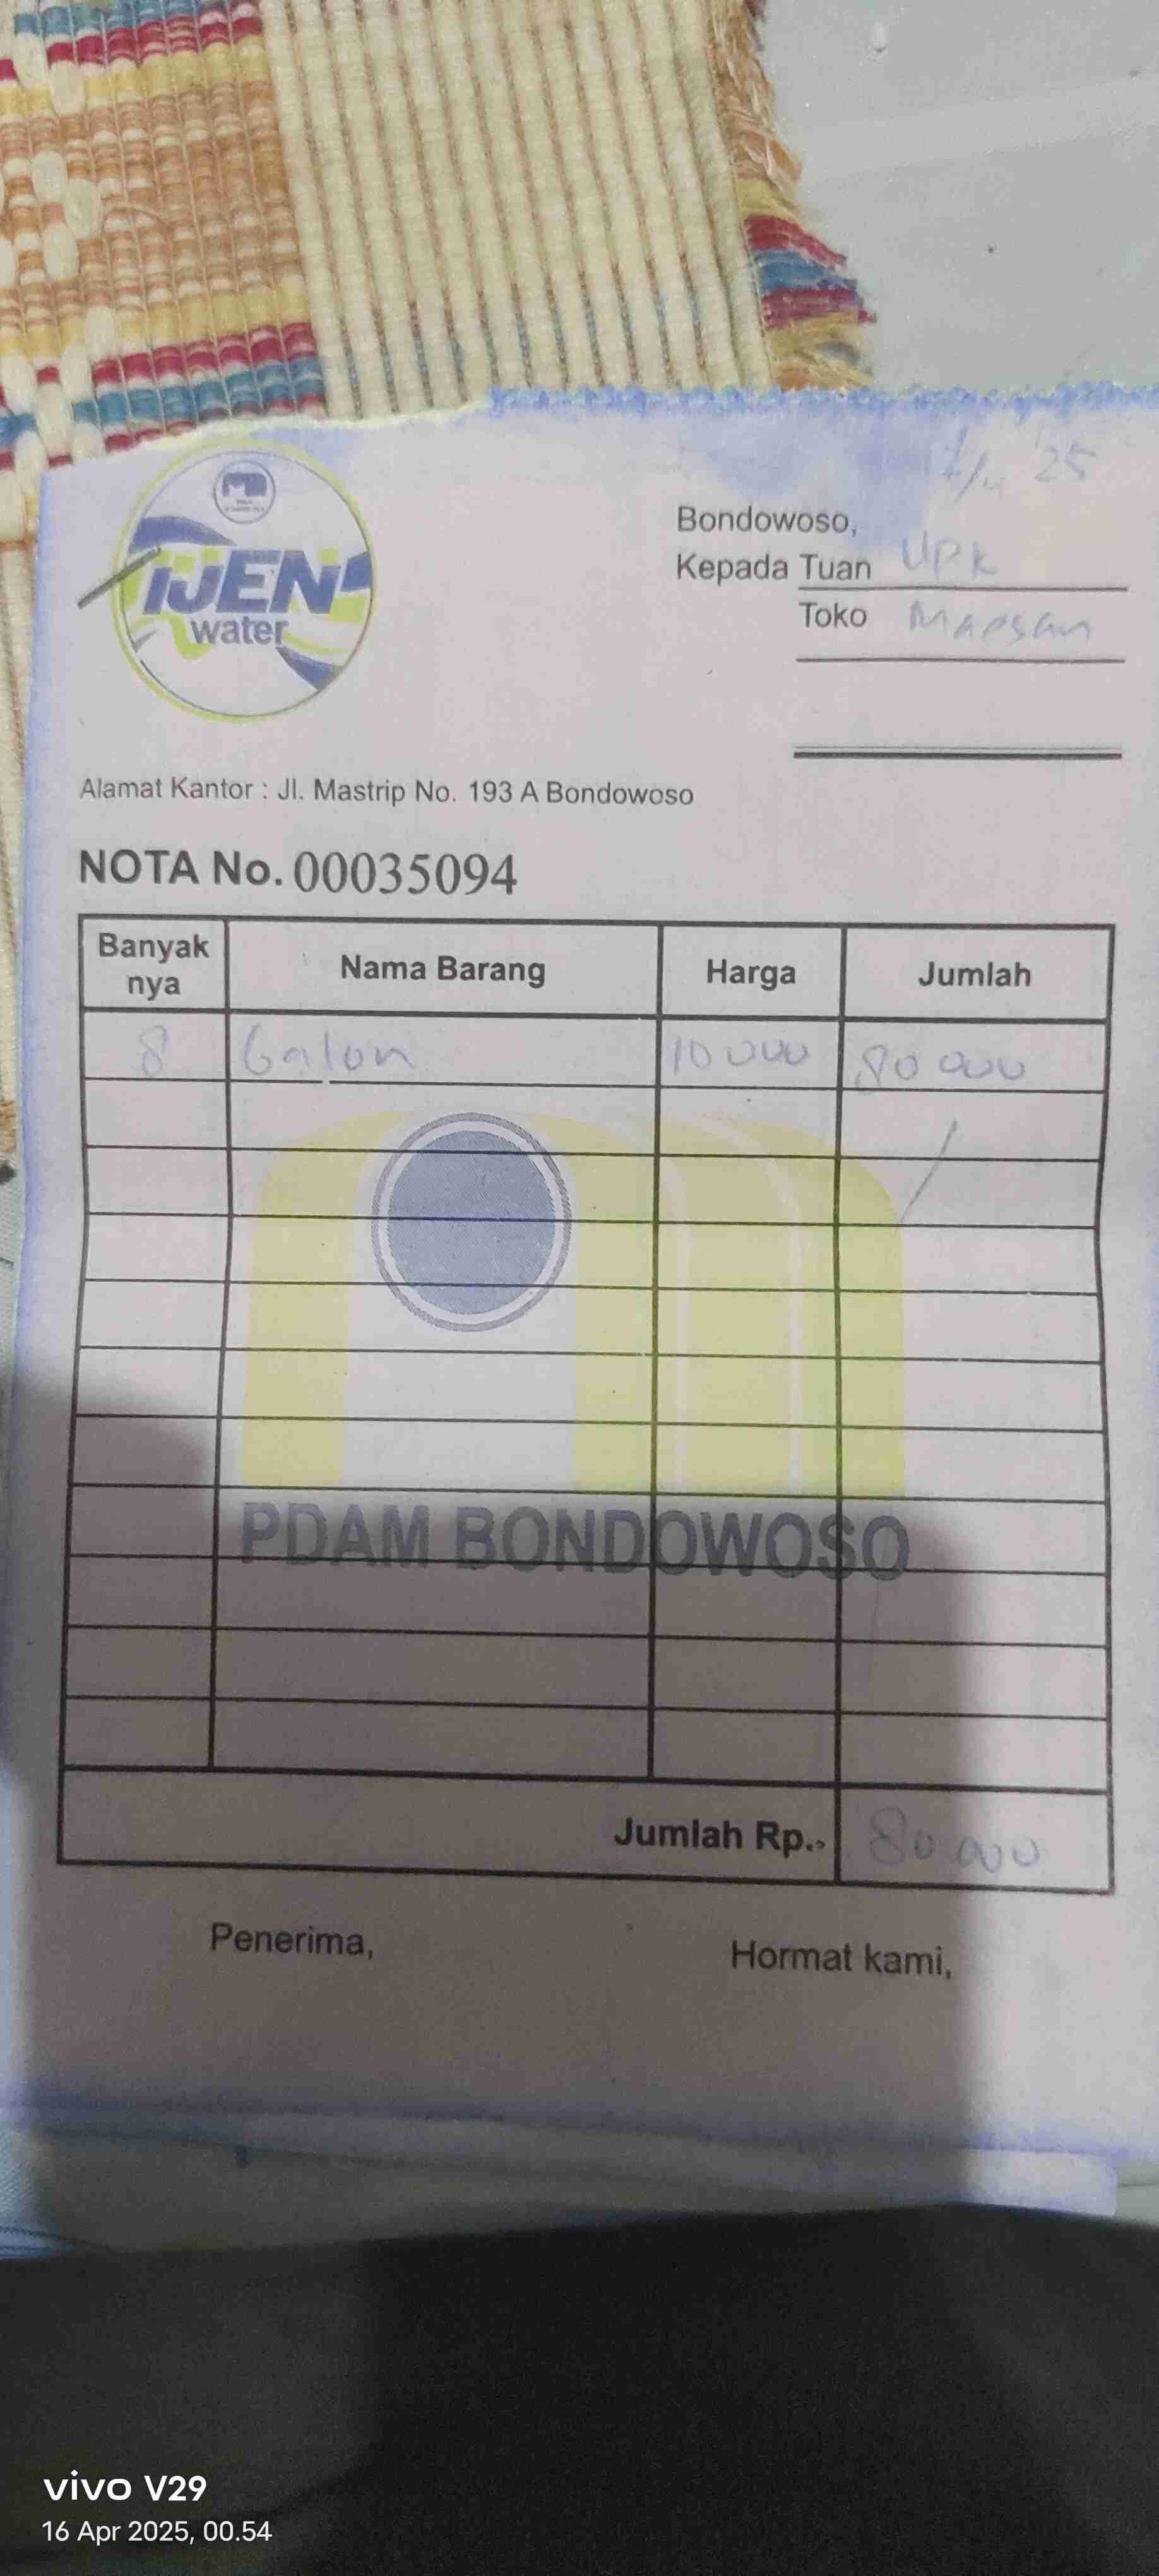 IJEN
water
/4 25
Bondowoso,
Kepada Tuan UPK
Toko
Alamat Kantor : Jl. Mastrip No. 193 A Bondowoso
NOTA No. 00035094
Banyak nya Nama Barang Harga Jumlah
8 Galon 10 000 80 000
PDAM BONDOWOSO
Jumlah Rp.. 80 000
Penerima, Hormat kami,
vivo V29
16 Apr 2025, 00.54